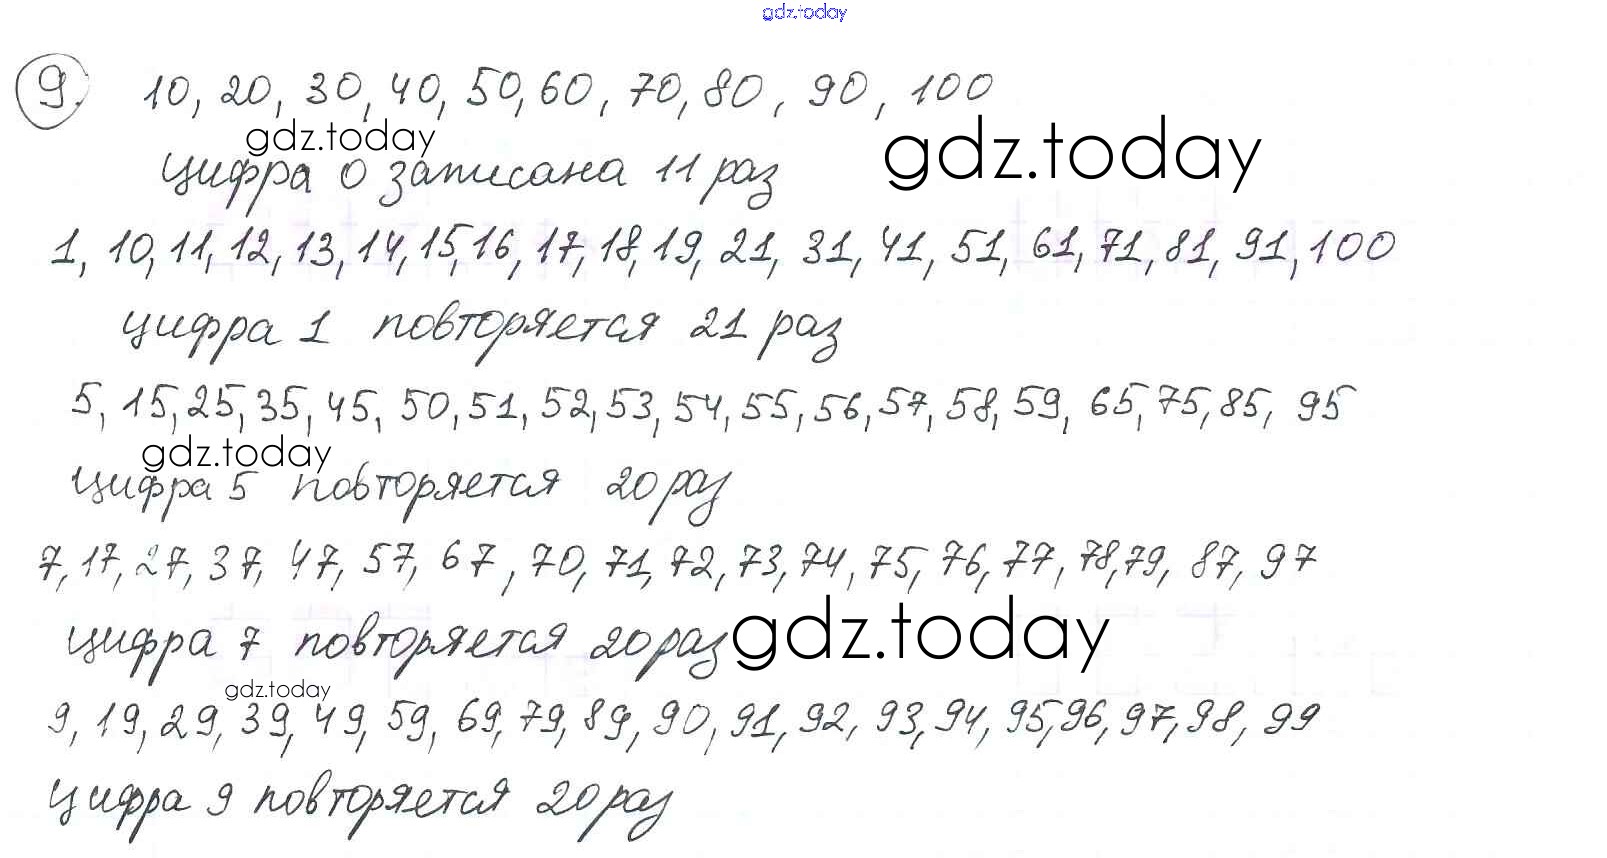 gdz.today
9. 10, 20, 30, 40, 50, 60, 70, 80, 90, 100
gdz.today
gdz.today
цифра 0 записана 11 раз
1, 10, 11, 12, 13, 14, 15, 16, 17, 18, 19, 21, 31, 41, 51, 61, 71, 81, 91, 100
цифра 1 повторяется 21 раз
5, 15, 25, 35, 45, 50, 51, 52, 53, 54, 55, 56, 57, 58, 59, 65, 75, 85, 95
gdz.today
цифра 5 повторяется 20 раз
7, 17, 27, 37, 47, 57, 67, 70, 71, 72, 73, 74, 75, 76, 77, 78, 79, 87, 97
цифра 7 повторяется 20 раз
gdz.today
gdz.today
9, 19, 29, 39, 49, 59, 69, 79, 89, 90, 91, 92, 93, 94, 95, 96, 97, 98, 99
цифра 9 повторяется 20 раз